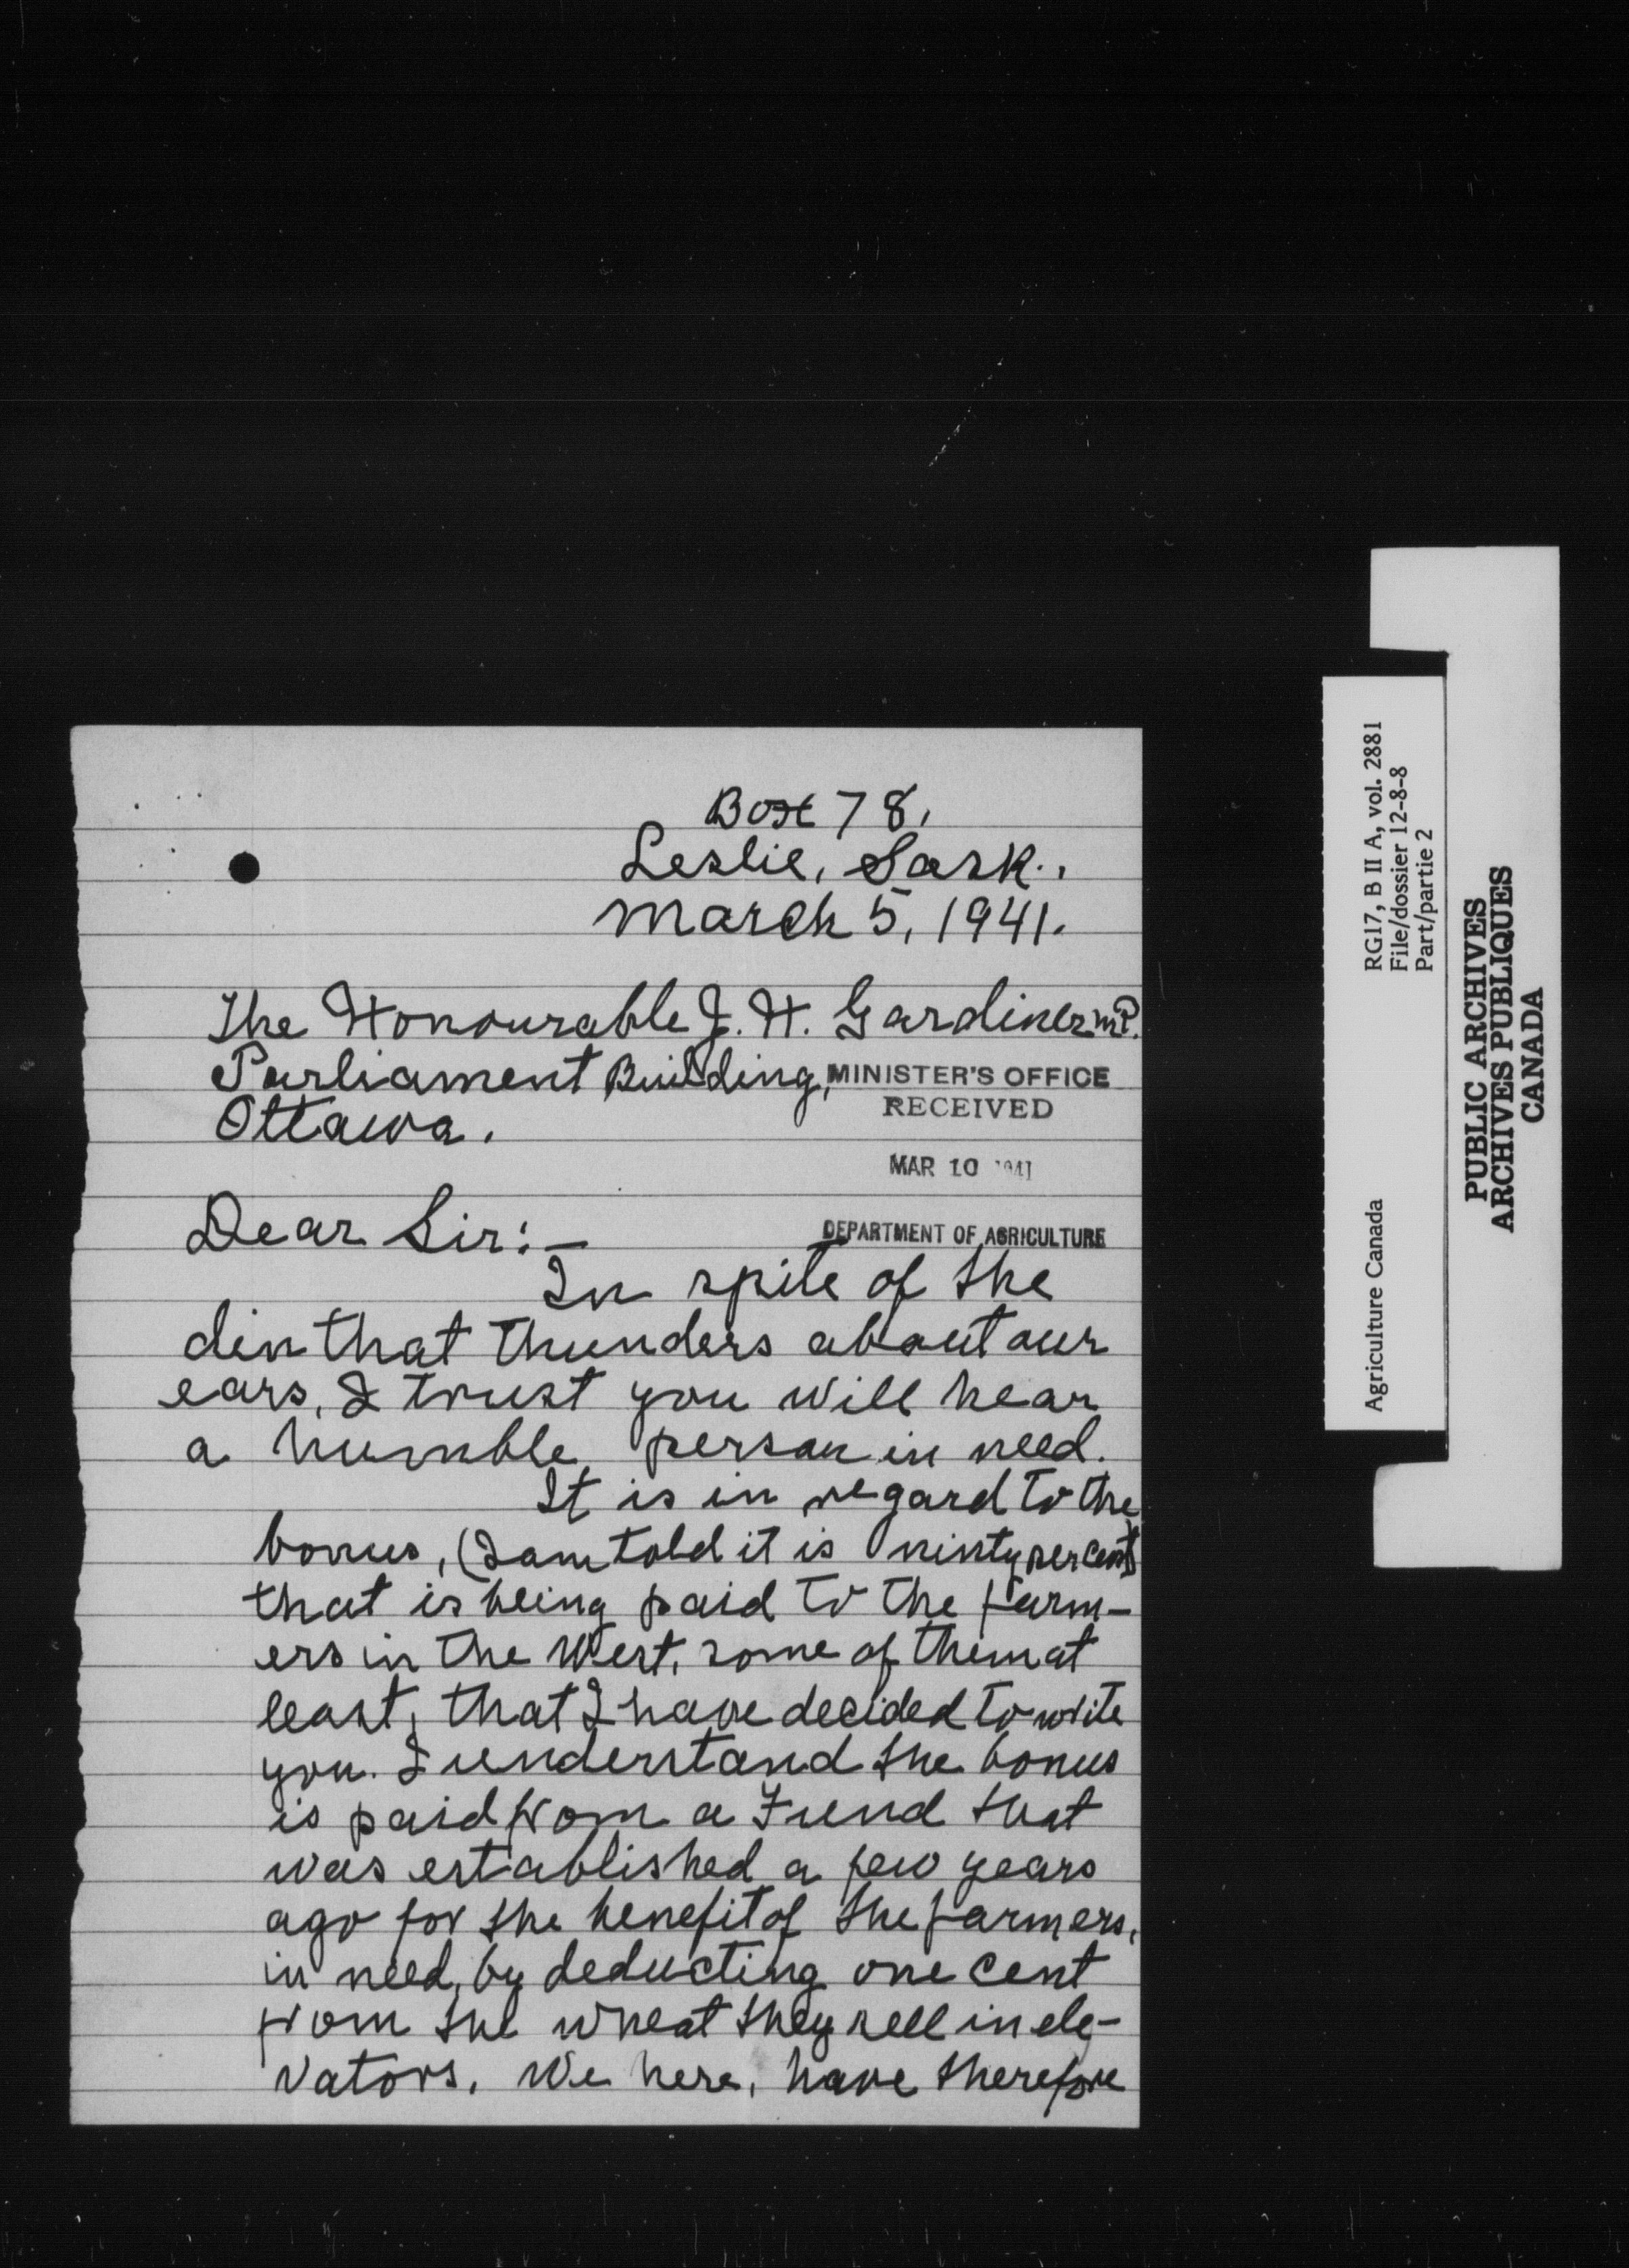 Box 78,
Leslie, Sask.,
March 5, 1941.
The Honourable J. H. Gardiner M.P.
Parliament Building,
Ottawa.
MINISTER'S OFFICE
RECEIVED
MAR 10 1941
DEPARTMENT OF AGRICULTURE
Dear Sir:—
In spite of the
din that thunders about our
ears, I trust you will hear
a humble person in need.
It is in regard to the
bonus, (I am told it is ninty per cent)
that is being paid to the farm-
ers in the West, some of them at
least, that I have decided to write
you. I understand the bonus
is paid from a Fund that
was established a few years
ago for the benefit of the farmers,
in need, by deducting one cent
from the wheat they sell in ele-
vators. We here, have therefore
Agriculture Canada
RG17, B II A, vol. 2881
File/dossier 12-8-8
Part/partie 2
PUBLIC ARCHIVES
ARCHIVES PUBLIQUES
CANADA